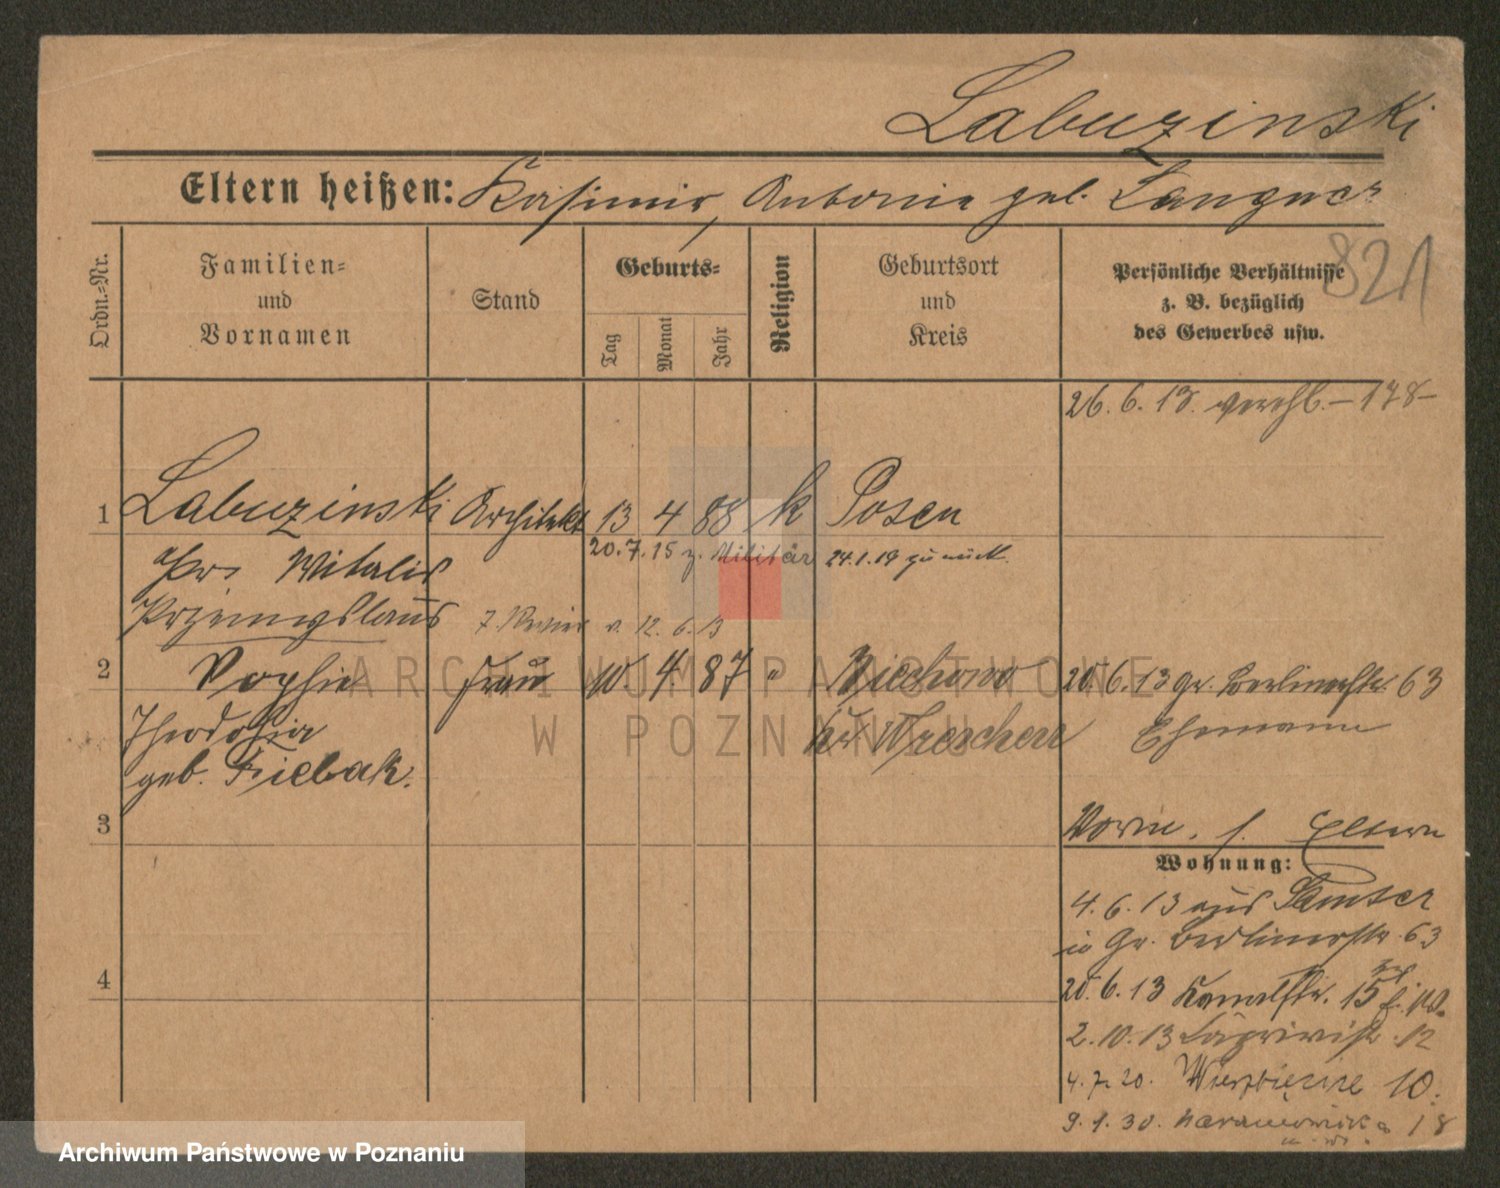 Labuzinski
Eltern heißen: Kasimir, Antonie geb. Langner
821
Ordn.-Nr.
Familien-
und
Vornamen
Stand
Geburts-
Tag
Monat
Jahr
Religion
Geburtsort
und
Kreis
Persönliche Verhältnisse
z. B. bezüglich
des Gewerbes usw.
26. 6. 13. verehl. – 178 –
1 Labuzinski Architekt 13 4 88 k Posen
20. 7. 15 z. Militär 24. 1. 19 zurück.
Witalis
Przemyslaus 7. Revier v. 12. 6. 13
2 Sophie Frau 10 4. 87 " Biechowo 20. 6. 13 gr. Berlinerstr. 63
Theodosia Kr Wreschen Ehemann
geb. Fiebak.
3 Vorm. s. Eltern
Wohnung:
4. 6. 13 aus Samter
in Gr. Berlinerstr. 63
4 20. 6. 13 Kanalstr. 15
2. 10. 13 Caprivistr. 12
4. 7. 20. Wierzbięcice 10.
9. 1. 30. 18
ARCHIWUM PAŃSTWOWE
W POZNANIU
Archiwum Państwowe w Poznaniu